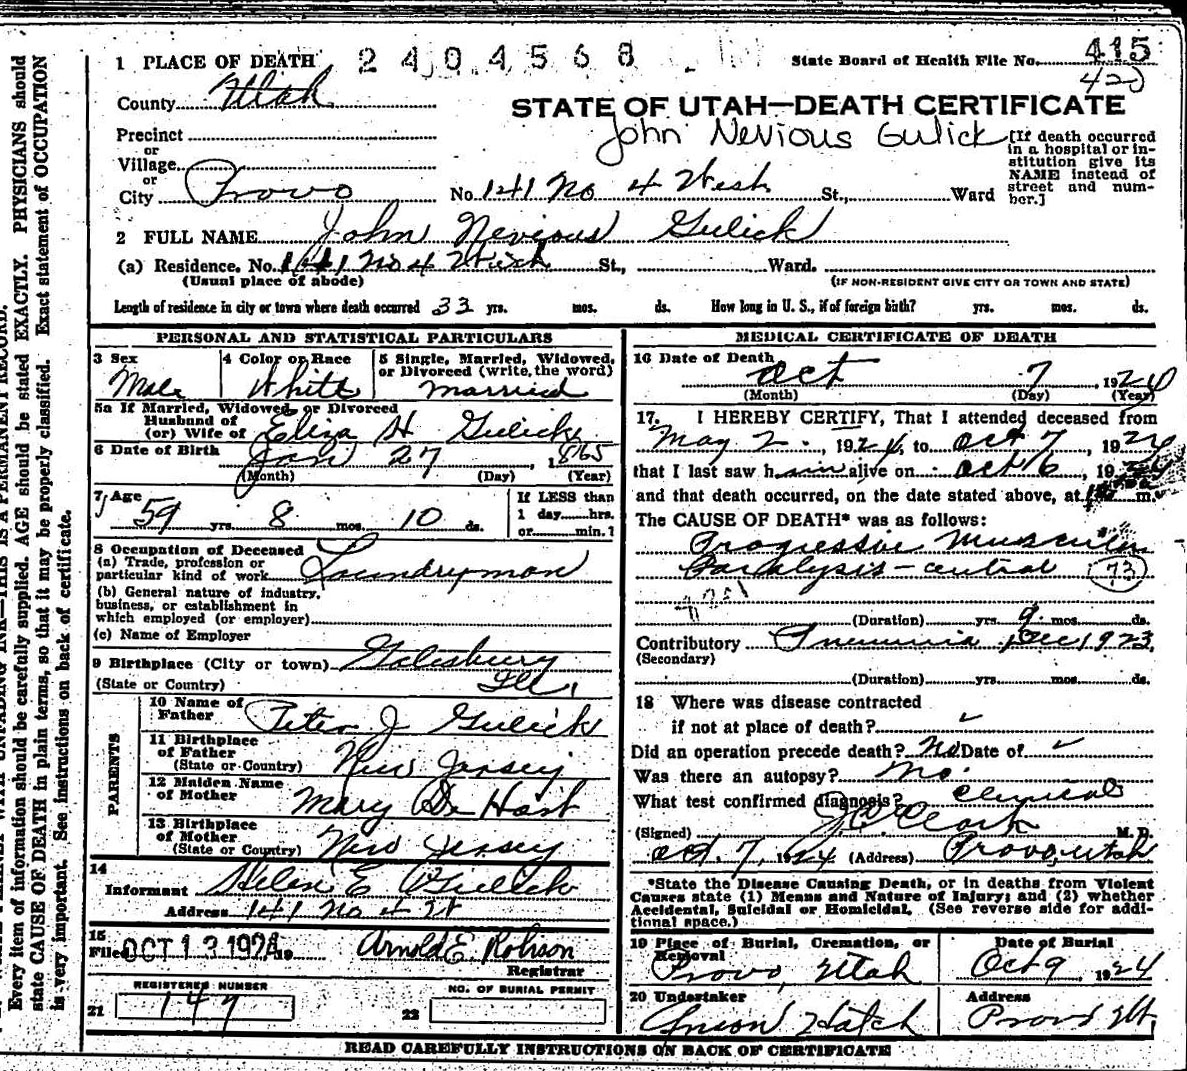 1 PLACE OF DEATH 2404568 State Board of Health File No. 415
420
County Utah
STATE OF UTAH—DEATH CERTIFICATE
John Nevious Gulick
Precinct
or
Village
or
City Provo No. 141 No 4 West St., Ward
[If death occurred
in a hospital or in-
stitution give its
NAME instead of
street and num-
ber.]
2 FULL NAME John Nevious Gulick
(a) Residence. No. 141 No 4 West St., Ward.
(Usual place of abode) (IF NON-RESIDENT GIVE CITY OR TOWN AND STATE)
Length of residence in city or town where death occurred 33 yrs. mos. ds. How long in U. S., if of foreign birth? yrs. mos. ds.
PERSONAL AND STATISTICAL PARTICULARS
3 Sex
Male
4 Color or Race
White
5 Single, Married, Widowed,
or Divorced (write, the word)
married
5a If Married, Widowed, or Divorced
Husband of
(or) Wife of Eliza H Gulick
6 Date of Birth Jan 27, 1865
(Month) (Day) (Year)
7 Age
59 yrs. 8 mos. 10 ds.
If LESS than
1 day......hrs.
or......min.?
8 Occupation of Deceased
(a) Trade, profession or
particular kind of work Laundryman
(b) General nature of industry,
business, or establishment in
which employed (or employer)
(c) Name of Employer
9 Birthplace (City or town) Galesburg
(State or Country) Ill.
PARENTS
10 Name of
Father Peter J Gulick
11 Birthplace
of Father
(State or Country) New Jersey
12 Maiden Name
of Mother Mary De Hart
13 Birthplace
of Mother
(State or Country) New Jersey
14
Informant Helen E Gulick
Address 141 No 4 W
15
Filed OCT 13 1924 19 Arnold E. Robison
Registrar
REGISTERED NUMBER
21 147
NO. OF BURIAL PERMIT
22
MEDICAL CERTIFICATE OF DEATH
16 Date of Death
Oct 7, 1924
(Month) (Day) (Year)
17. I HEREBY CERTIFY, That I attended deceased from
May 2, 1924, to Oct 7, 1924
that I last saw him alive on Oct 6, 1924
and that death occurred, on the date stated above, at m.
The CAUSE OF DEATH* was as follows:
Progressive Muscular
Paralysis - central 73
(Duration) yrs. 9 mos. ds.
Contributory Pneumonia, Dec 1923
(Secondary)
(Duration) yrs. mos. ds.
18 Where was disease contracted
if not at place of death? ✓
Did an operation precede death? No Date of ✓
Was there an autopsy? No.
What test confirmed diagnosis? Clinical
(Signed) J C Clark M. D.
Oct. 7, 1924 (Address) Provo, Utah
*State the Disease Causing Death, or in deaths from Violent
Causes state (1) Means and Nature of Injury; and (2) whether
Accidental, Suicidal or Homicidal. (See reverse side for addi-
tional space.)
19 Place of Burial, Cremation, or
Removal
Provo, Utah
Date of Burial
Oct 9, 1924
20 Undertaker
Anson Hatch
Address
Provo Ut.
READ CAREFULLY INSTRUCTIONS ON BACK OF CERTIFICATE
Every item of information should be carefully supplied. AGE should be stated EXACTLY. PHYSICIANS should
state CAUSE OF DEATH in plain terms, so that it may be properly classified. Exact statement of OCCUPATION
is very important. See instructions on back of certificate.